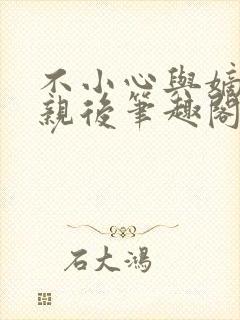 不小心與嫡
親後筆趣閣
石大鴻